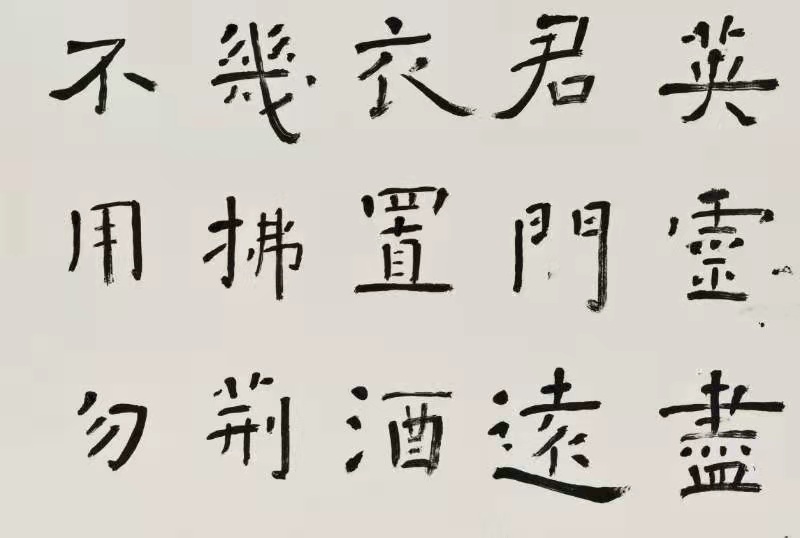 英靈盡
君門遠
衣置酒
幾拂荆
不用勿